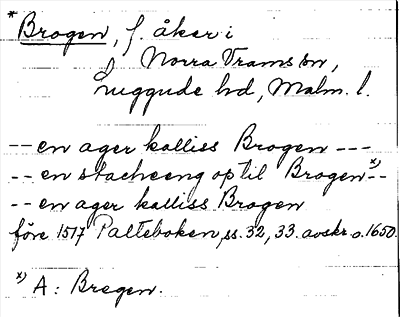 * Brogen, f. åker i
Norra Vrams sn,
Luggude hd, Malm. l.
-- en ager kalliss Brogen ---
-- en stacheeng op til Brogen x) --
-- en ager kalliss Brogen
före 1517 Palteboken, ss. 32, 33. avskr. o. 1650.
x) A: Bregen.